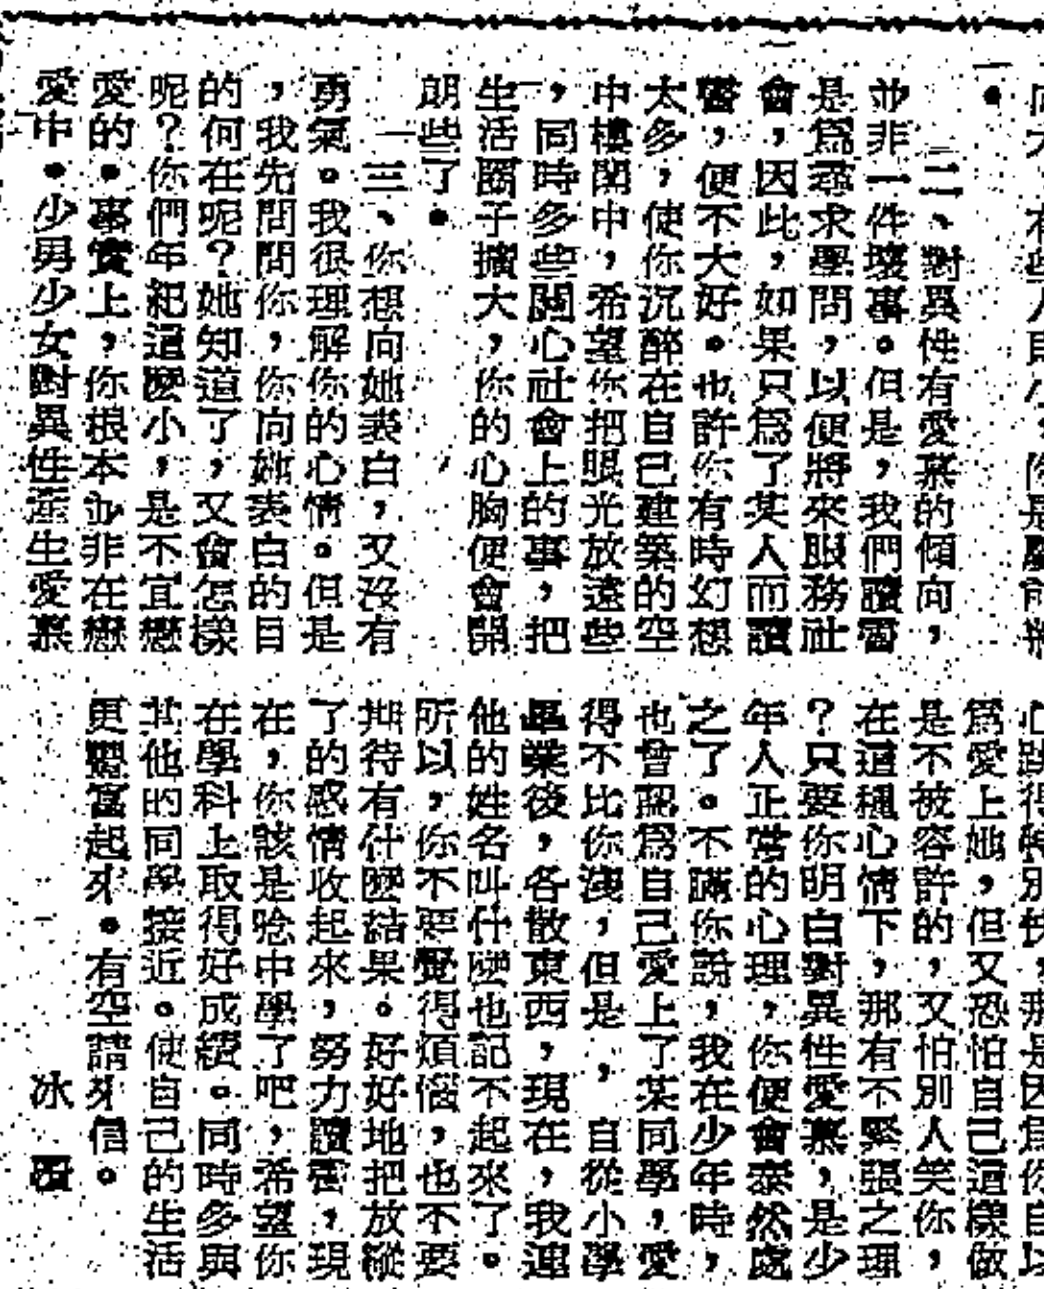 。
二、對異性有愛慕的傾向，
並非一件壞事。但是，我們讀書
是爲尋求學問，以便將來服務社
會，因此，如果只爲了某人而讀
書，便不大好。也許你有時幻想
太多，使你沉醉在自己建築的空
中樓閣中，希望你把眼光放遠些
，同時多些關心社會上的事，把
生活圈子擴大，你的心胸便會開
朗些了。
三、你想向她表白，又沒有
勇氣。我很理解你的心情。但是
，我先問問你，你向她表白的目
的何在呢？她知道了，又會怎樣
呢？你們年紀這麽小，是不宜戀
愛的。事實上，你根本並非在戀
愛中。少男少女對異性產生愛慕
心跳得特別快，那是因爲你自以
爲愛上她，但又恐怕自己這樣做
是不被容許的，又怕別人笑你，
在這種心情下，那有不緊張之理
？只要你明白對異性愛慕，是少
年人正常的心理，你便會泰然處
之了。不瞞你說，我在少年時，
也曾認爲自己愛上了某同學，愛
得不比你淺，但是，自從小學
畢業後，各散東西，現在，我連
他的姓名叫什麽也記不起來了。
所以，你不要覺得煩惱，也不要
期待有什麽結果。好好地把放縱
了的感情收起來，努力讀書，現
在，你該是唸中學了吧，希望你
在學科上取得好成績。同時多與
其他的同學接近。使自己的生活
更豐富起來。有空請來信。
冰